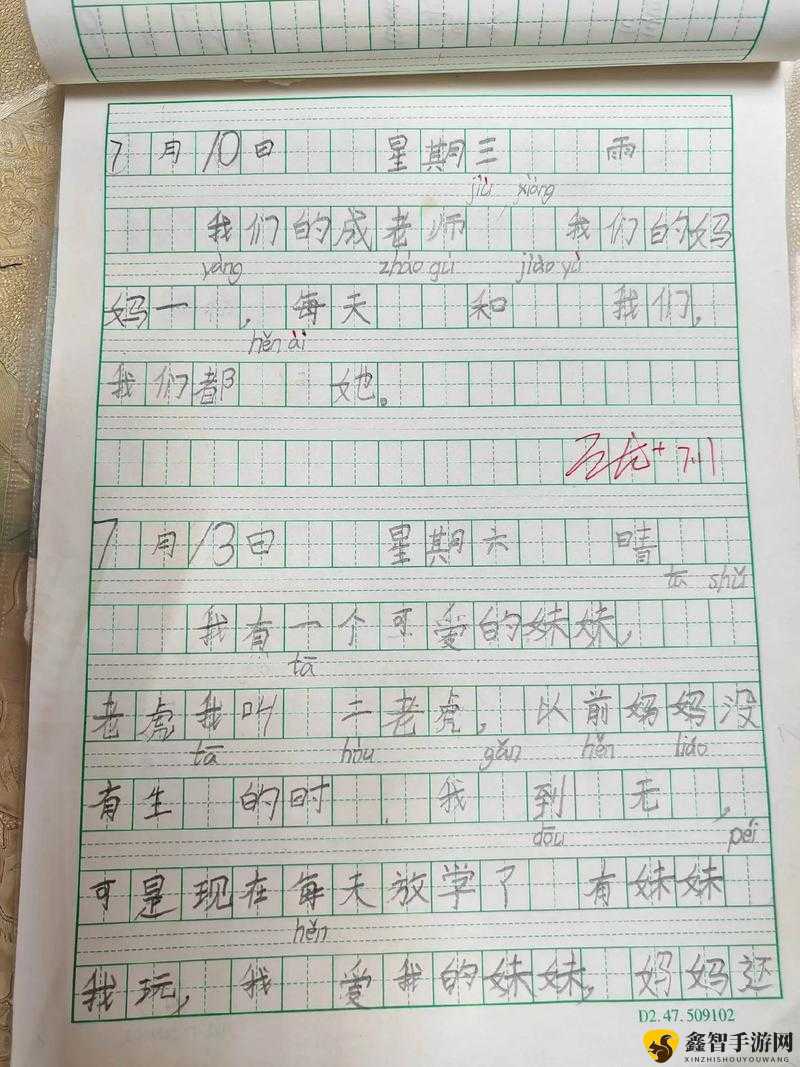 7月10日 星期三 雨
jiù xiàng
我们的成老师 我们的妈
yàng zhào gù jiào yù
妈一 ,每天 和 我们,
hěn ài
我们都 她。
7.11
7月13日 星期六 晴
tā shǔ
我有一个可爱的妹妹,
tā
老虎我叫 二老虎,以前妈妈没
tā hòu gǎn hěn liáo
有生 的时 我 到 无 ,
dōu péi
可是现在每天放学了 有妹妹
hěn
我玩, 我 爱我的妹妹,妈妈还
D2.47.509102
鑫智手游网
XINZHISHOUYOUWANG